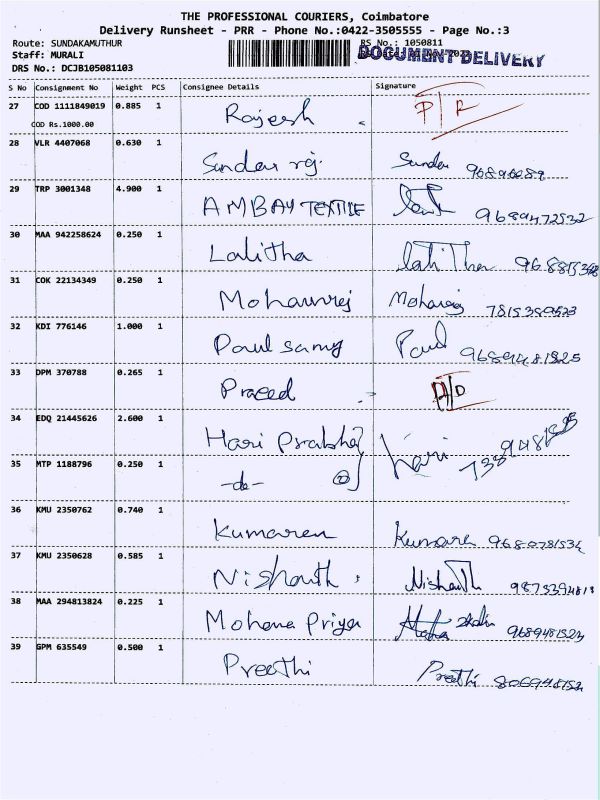 THE PROFESSIONAL COURIERS, Coimbatore
Delivery Runsheet - PRR - Phone No.:0422-3505555 - Page No.:3
Route: SUNDAKAMUTHUR RS No.: 1050811
Staff: MURALI DOCUMENT DELIVERY
DRS No.: DCJB105081103
S No Consignment No Weight PCS Consignee Details Signature
27 COD 1111849019 0.885 1 Rajesh P/R
COD Rs.1000.00
28 VLR 4407068 0.630 1 Sundar raj. Sundar
29 TRP 3001348 4.900 1 AMBAY TEXTILE 9689472532
30 MAA 942258624 0.250 1 Lalitha Lalitha
31 COK 22134349 0.250 1 Mohanraj Mohanraj
32 KDI 776146 1.000 1 Paulsamy Paul
33 DPM 370788 0.265 1 Praeed D/D
34 EDQ 21445626 2.600 1 Hari Prabha Hari
35 MTP 1188796 0.250 1 -do- @
36 KMU 2350762 0.740 1 Kumaren Kumaren
37 KMU 2350628 0.585 1 Nishanth Nishanth
38 MAA 294813824 0.225 1 Mohana Priya
39 GPM 635549 0.500 1 Preethi Preethi